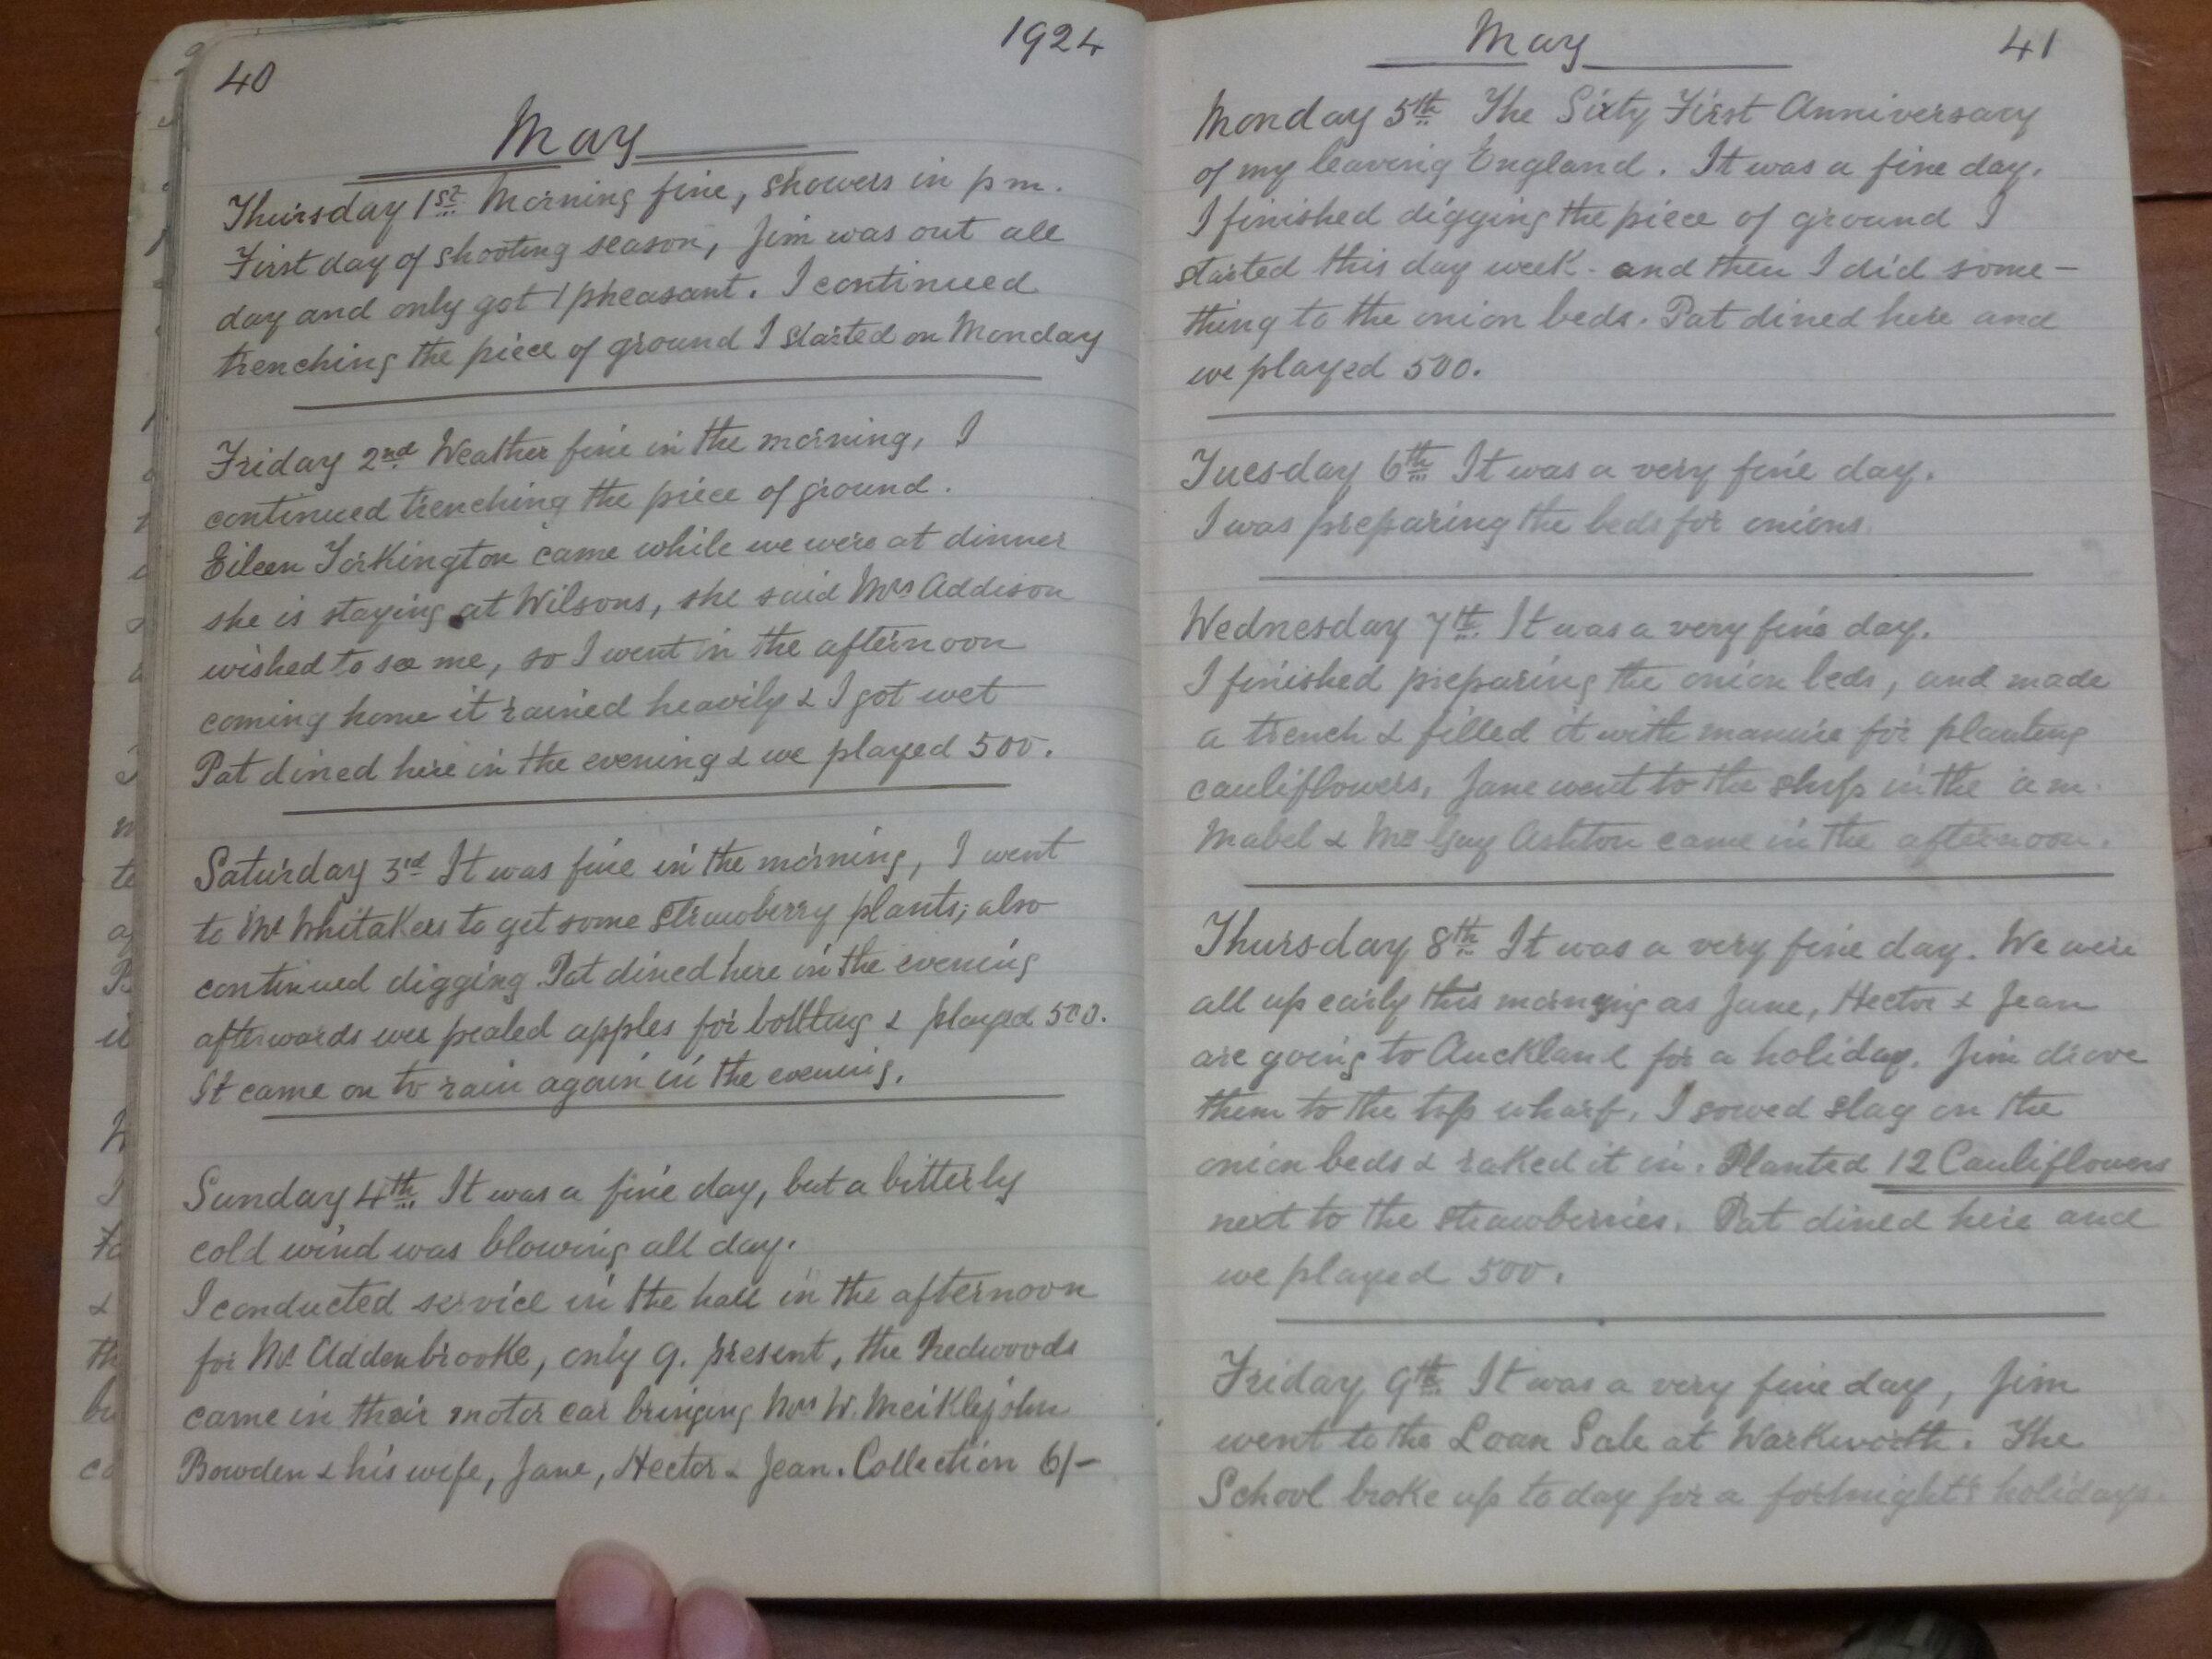 40
1924
May
Thursday 1st Morning fine, showers in pm.
First day of shooting season, Jim was out all
day and only got 1 pheasant. I continued
trenching the piece of ground I started on Monday
Friday 2nd Weather fine in the morning, I
continued trenching the piece of ground.
Eileen Torkington came while we were at dinner
she is staying at Wilsons, she said Mrs Addison
wished to see me, so I went in the afternoon
coming home it rained heavily & I got wet
Pat dined here in the evening & we played 500.
Saturday 3rd It was fine in the morning, I went
to Mr Whitakers to get some strawberry plants; also
continued digging. Pat dined here in the evening
afterwards wee pealed apples for bottling & played 500.
It came on to rain again in the evening.
Sunday 4th It was a fine day, but a bitterly
cold wind was blowing all day.
I conducted service in the hall in the afternoon
for Mr Addenbrooke, only 9. present, the Redwoods
came in their motor car bringing Mrs W. Meiklejohn
Bowden & his wife, Jane, Hector & Jean. Collection 6/-
May
41
Monday 5th The Sixty First Anniversary
of my leaving England. It was a fine day.
I finished digging the piece of ground I
started this day week - and then I did some-
thing to the onion beds. Pat dined here and
we played 500.
Tuesday 6th It was a very fine day.
I was preparing the beds for onions.
Wednesday 7th It was a very fine day.
I finished preparing the onion beds, and made
a trench & filled it with manure for planting
cauliflowers, Jane went to the shop in the am.
Mabel & Mrs Guy Ashton came in the afternoon.
Thursday 8th It was a very fine day. We were
all up early this morning as Jane, Hector & Jean
are going to Auckland for a holiday. Jim drove
them to the top wharf. I sowed slag on the
onion beds & raked it in. Planted 12 Cauliflowers
next to the strawberries. Pat dined here and
we played 500.
Friday 9th It was a very fine day, Jim
went to the Loan Sale at Warkworth. The
School broke up to day for a fortnight's holidays.